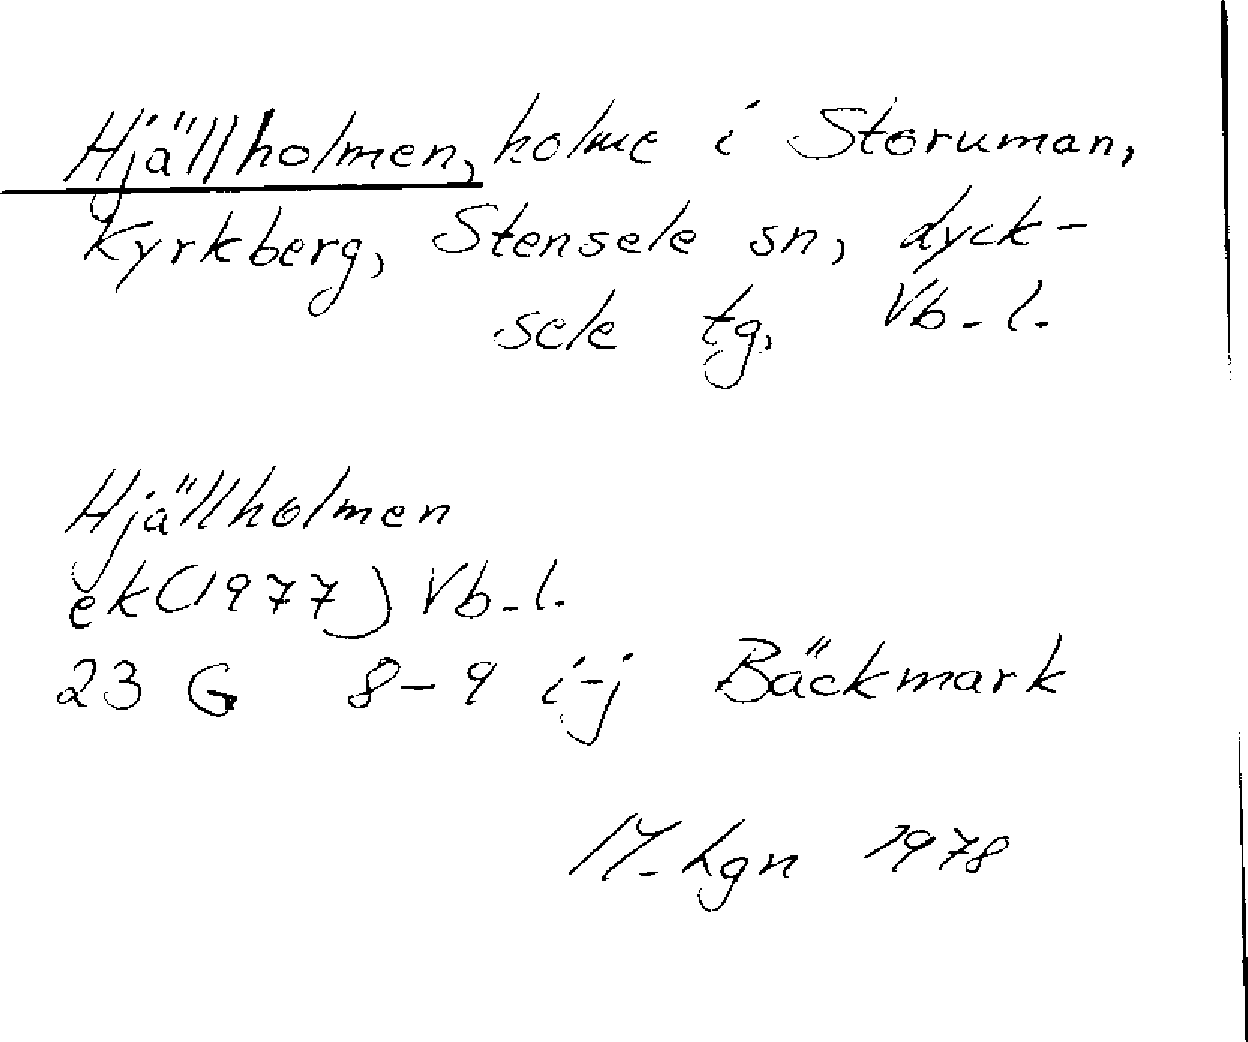 Hjällholmen, holme i Storuman,
Kyrkberg, Stensele sn, Lyck-
sele tg, Vb. l.
Hjällholmen
ek (1977) Vb. l.
23 G 8-9 i-j Bäckmark
hgn 1978